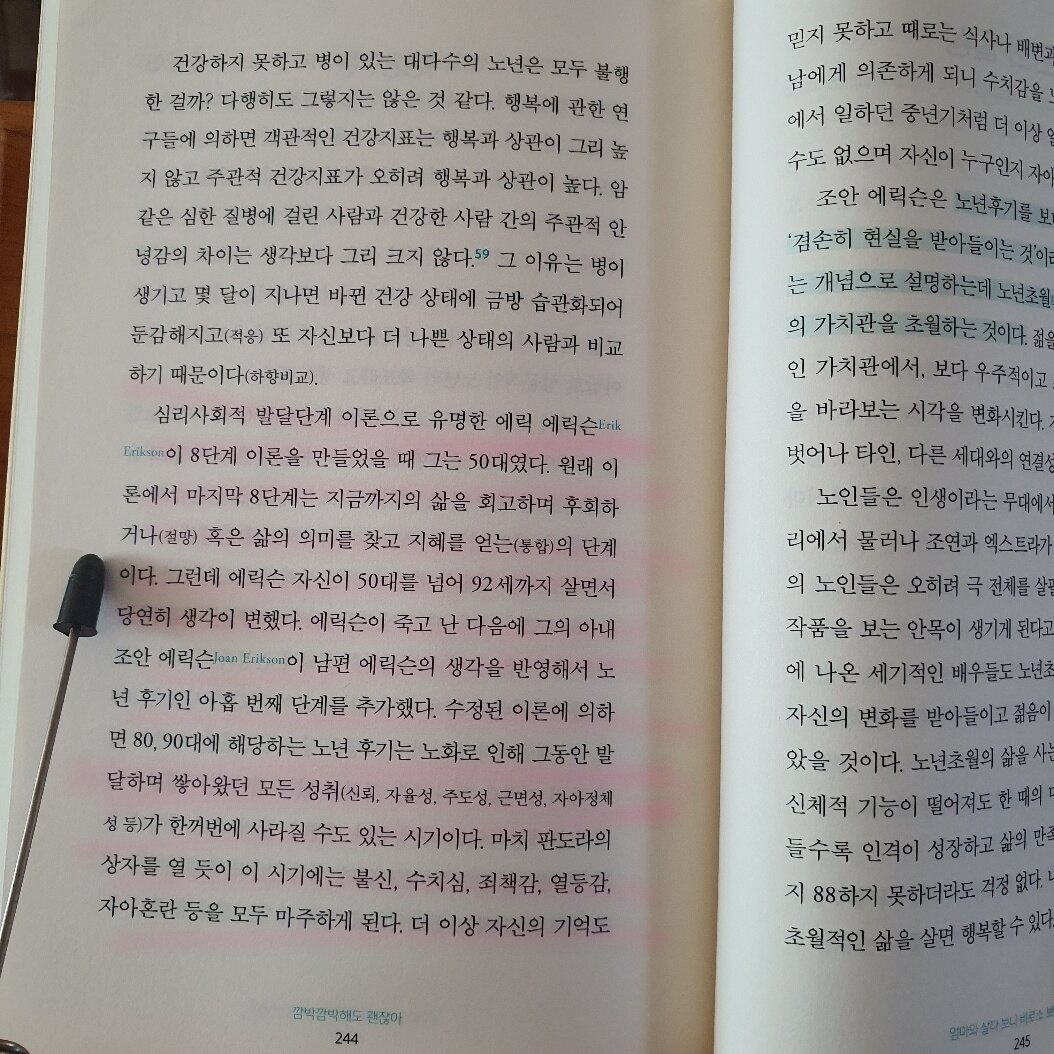 건강하지 못하고 병이 있는 대다수의 노년은 모두 불행
한 걸까? 다행히도 그렇지는 않은 것 같다. 행복에 관한 연
구들에 의하면 객관적인 건강지표는 행복과 상관이 그리 높
지 않고 주관적 건강지표가 오히려 행복과 상관이 높다. 암
같은 심한 질병에 걸린 사람과 건강한 사람 간의 주관적 안
녕감의 차이는 생각보다 그리 크지 않다.59 그 이유는 병이
생기고 몇 달이 지나면 바뀐 건강 상태에 금방 습관화되어
둔감해지고(적응) 또 자신보다 더 나쁜 상태의 사람과 비교
하기 때문이다(하향비교).
심리사회적 발달단계 이론으로 유명한 에릭 에릭슨Erik
Erikson이 8단계 이론을 만들었을 때 그는 50대였다. 원래 이
론에서 마지막 8단계는 지금까지의 삶을 회고하며 후회하
거나(절망) 혹은 삶의 의미를 찾고 지혜를 얻는(통합)의 단계
이다. 그런데 에릭슨 자신이 50대를 넘어 92세까지 살면서
당연히 생각이 변했다. 에릭슨이 죽고 난 다음에 그의 아내
조안 에릭슨Joan Erikson이 남편 에릭슨의 생각을 반영해서 노
년 후기인 아홉 번째 단계를 추가했다. 수정된 이론에 의하
면 80, 90대에 해당하는 노년 후기는 노화로 인해 그동안 발
달하며 쌓아왔던 모든 성취(신뢰, 자율성, 주도성, 근면성, 자아정체
성 등)가 한꺼번에 사라질 수도 있는 시기이다. 마치 판도라의
상자를 열 듯이 이 시기에는 불신, 수치심, 죄책감, 열등감,
자아혼란 등을 모두 마주하게 된다. 더 이상 자신의 기억도
깜박깜박해도 괜잖아
244
믿지 못하고 때로는 식사나 배변과
남에게 의존하게 되니 수치감을
에서 일하던 중년기처럼 더 이상
수도 없으며 자신이 누구인지 자아
조안 에릭슨은 노년후기를
'겸손히 현실을 받아들이는 것'이라
는 개념으로 설명하는데 노년초월
의 가치관을 초월하는 것이다. 젊을
인 가치관에서, 보다 우주적이고
을 바라보는 시각을 변화시킨다.
벗어나 타인, 다른 세대와의 연결성
노인들은 인생이라는 무대에서
리에서 물러나 조연과 엑스트라가
의 노인들은 오히려 극 전체를 살필
작품을 보는 안목이 생기게 된다고
에 나온 세기적인 배우들도 노년초
자신의 변화를 받아들이고 젊음이
았을 것이다. 노년초월의 삶을 사는
신체적 기능이 떨어져도 한 때의
들수록 인격이 성장하고 삶의 만족
지 88하지 못하더라도 걱정 없다.
초월적인 삶을 살면 행복할 수 있다.
엄마와 살다 보니 비로소
245